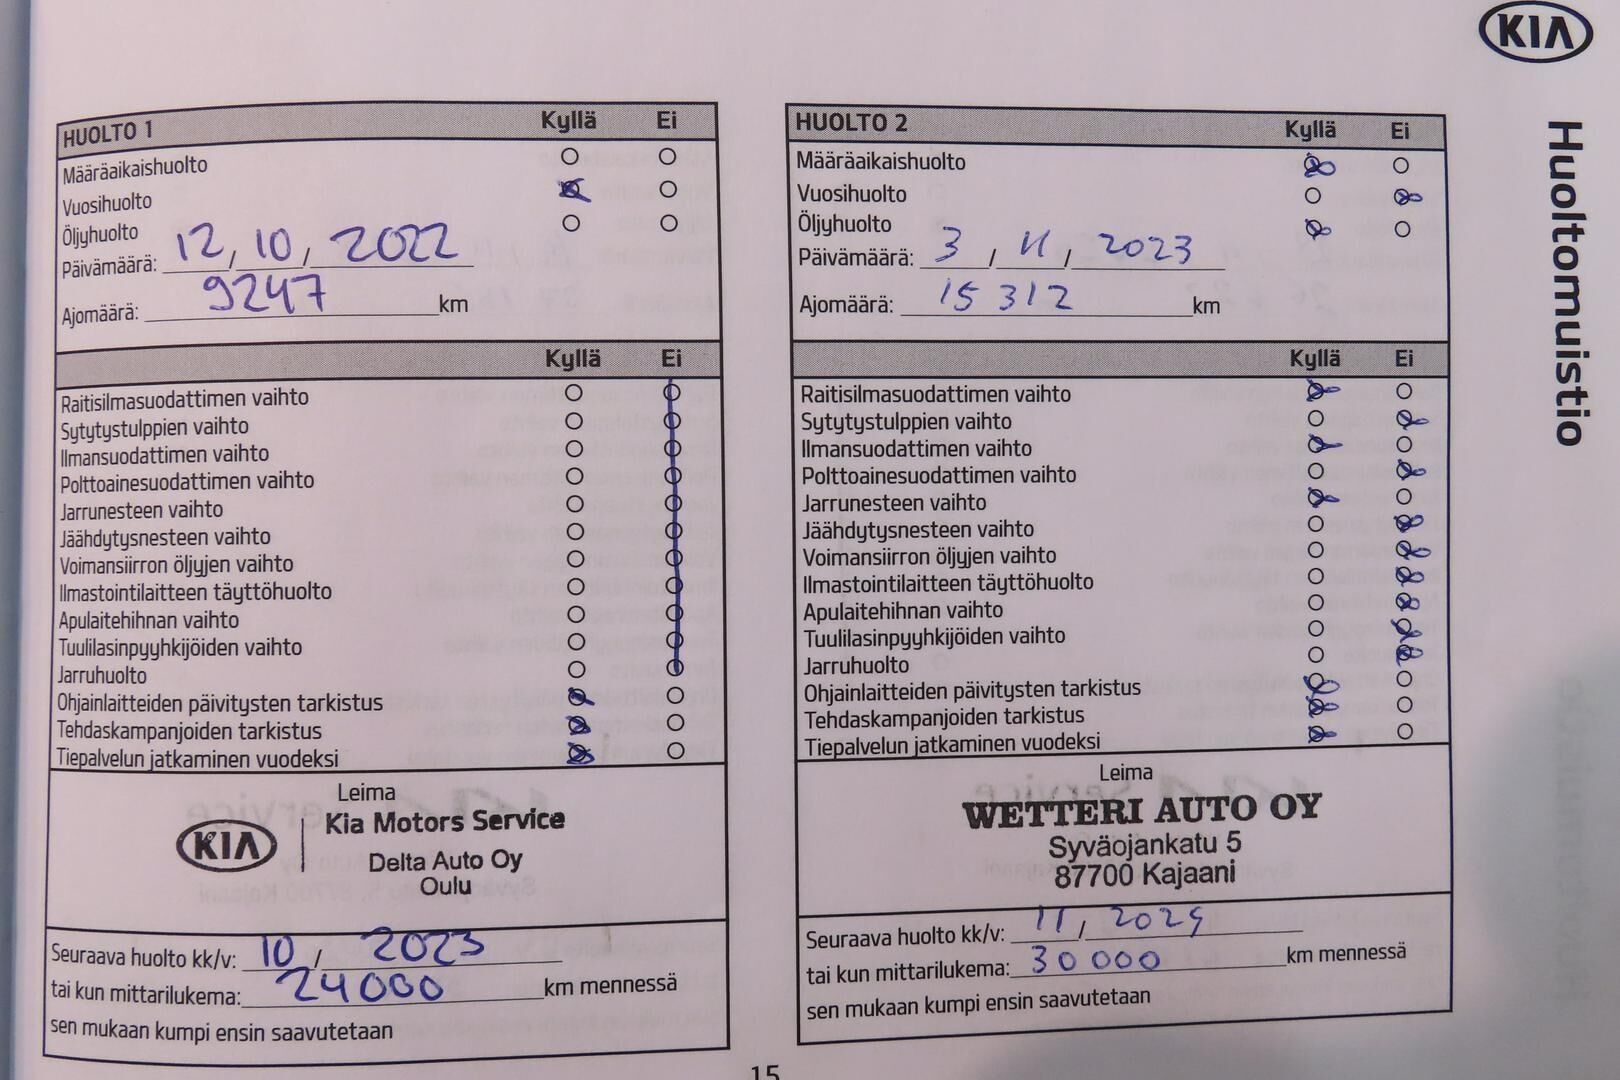 KIA
Huoltomuistio
HUOLTO 1 Kyllä Ei
Määräaikaishuolto
Vuosihuolto
Öljyhuolto
Päivämäärä: 12, 10, 2022
Ajomäärä: 9247 km
Kyllä Ei
Raitisilmasuodattimen vaihto
Sytytystulppien vaihto
Ilmansuodattimen vaihto
Polttoainesuodattimen vaihto
Jarrunesteen vaihto
Jäähdytysnesteen vaihto
Voimansiirron öljyjen vaihto
Ilmastointilaitteen täyttöhuolto
Apulaitehihnan vaihto
Tuulilasinpyyhkijöiden vaihto
Jarruhuolto
Ohjainlaitteiden päivitysten tarkistus
Tehdaskampanjoiden tarkistus
Tiepalvelun jatkaminen vuodeksi
Leima
KIA Kia Motors Service
Delta Auto Oy
Oulu
Seuraava huolto kk/v: 10 / 2023
tai kun mittarilukema: 24000 km mennessä
sen mukaan kumpi ensin saavutetaan
HUOLTO 2 Kyllä Ei
Määräaikaishuolto
Vuosihuolto
Öljyhuolto
Päivämäärä: 3 / 11 / 2023
Ajomäärä: 15 312 km
Kyllä Ei
Raitisilmasuodattimen vaihto
Sytytystulppien vaihto
Ilmansuodattimen vaihto
Polttoainesuodattimen vaihto
Jarrunesteen vaihto
Jäähdytysnesteen vaihto
Voimansiirron öljyjen vaihto
Ilmastointilaitteen täyttöhuolto
Apulaitehihnan vaihto
Tuulilasinpyyhkijöiden vaihto
Jarruhuolto
Ohjainlaitteiden päivitysten tarkistus
Tehdaskampanjoiden tarkistus
Tiepalvelun jatkaminen vuodeksi
Leima
WETTERI AUTO OY
Syväojankatu 5
87700 Kajaani
Seuraava huolto kk/v: 11 / 2024
tai kun mittarilukema: 30 000 km mennessä
sen mukaan kumpi ensin saavutetaan
15